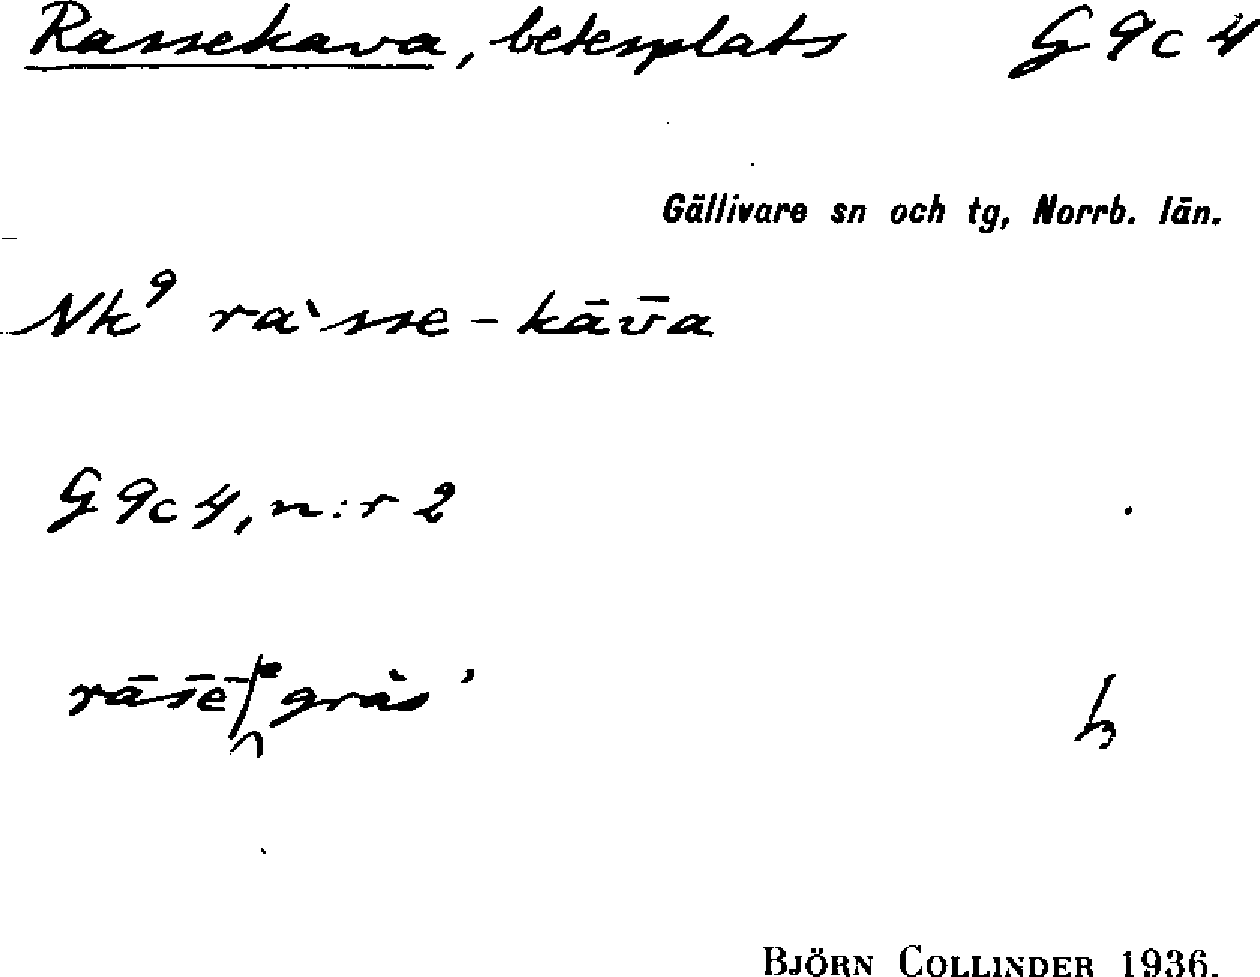 Rassekava, betesplats G 9 c 4
Gällivare sn och tg, Norrb. län.
Nk⁹ ra`sse-kāv̄a
G 9 c 4, n:r 2
gräs'
h
BJÖRN COLLINDER 1936.